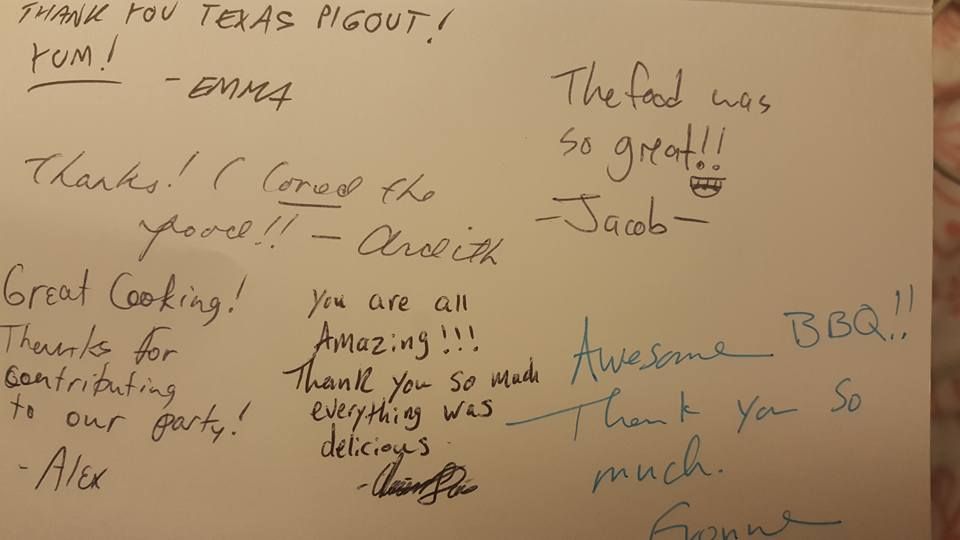 THANK YOU TEXAS PIGOUT!
YUM!
- EMMA
The food was
so great!!
- Jacob -
Thanks! I loved the
food!! - Ardith
Great Cooking!
Thanks for
contributing
to our party!
- Alex
You are all
Amazing!!!
Thank you so much
everything was
delicious
Awesome BBQ!!
Thank you so
much.